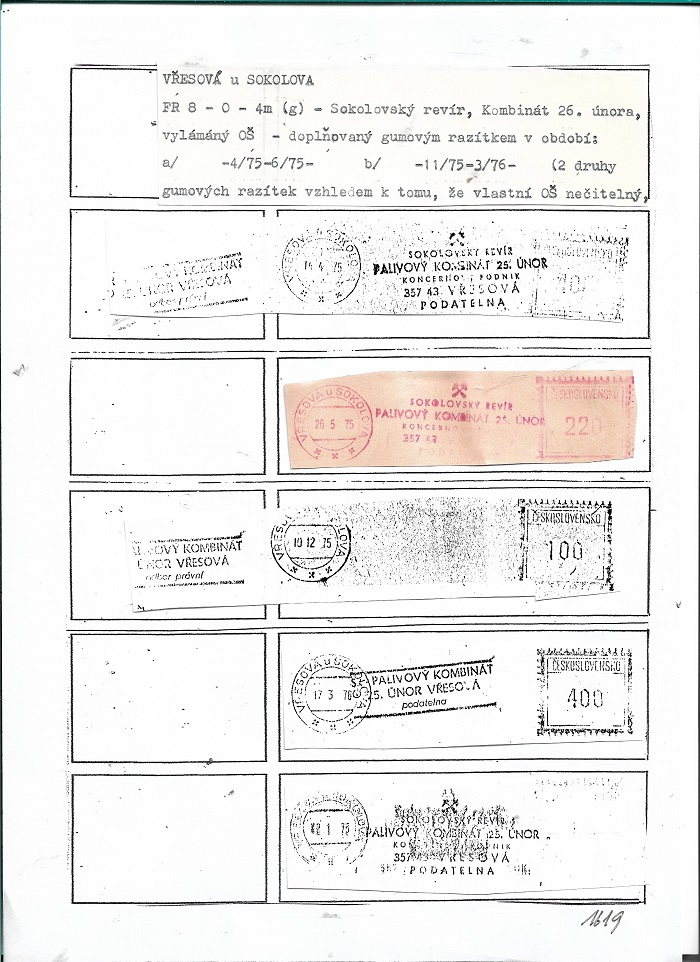 VŘESOVÁ u SOKOLOVA
FR 8 - 0 - 4m (g) - Sokolovský revír, Kombinát 26. února,
vylámáný OŠ - doplňovaný gumovým razítkem v období:
a/ -4/75-6/75- b/ -11/75-3/76- (2 druhy
gumových razítek vzhledem k tomu, že vlastní OŠ nečitelný,
KOMBINÁT
ÚNOR VŘESOVÁ
odbor právní
VŘESOVÁ u SOKOLOVA
14 4 75
SOKOLOVSKÝ REVÍR
PALIVOVÝ KOMBINÁT 25. ÚNOR
KONCERNOVÝ PODNIK
357 43 VŘESOVÁ
PODATELNA
100
VŘESOVÁ u SOKOLOVA
26 5 75
SOKOLOVSKÝ REVÍR
PALIVOVÝ KOMBINÁT 25. ÚNOR
KONCERNO
357 43
PODAT
ČESKOSLOVENSKO
220
PALIVOVÝ KOMBINÁT
ÚNOR VŘESOVÁ
odbor právní
VŘESO LOVA
10 12 75
ČESKOSLOVENSKO
100
VŘESOVÁ u SOKOLOVA
17 3 76
PALIVOVÝ KOMBINÁT
25. ÚNOR VŘESOVÁ
podatelna
ČESKOSLOVENSKO
400
1 75
SOKOLOVSKÝ REVÍR
PALIVOVÝ KOMBINÁT 25. ÚNOR
357 43 VŘESOVÁ
PODATELNA
1619